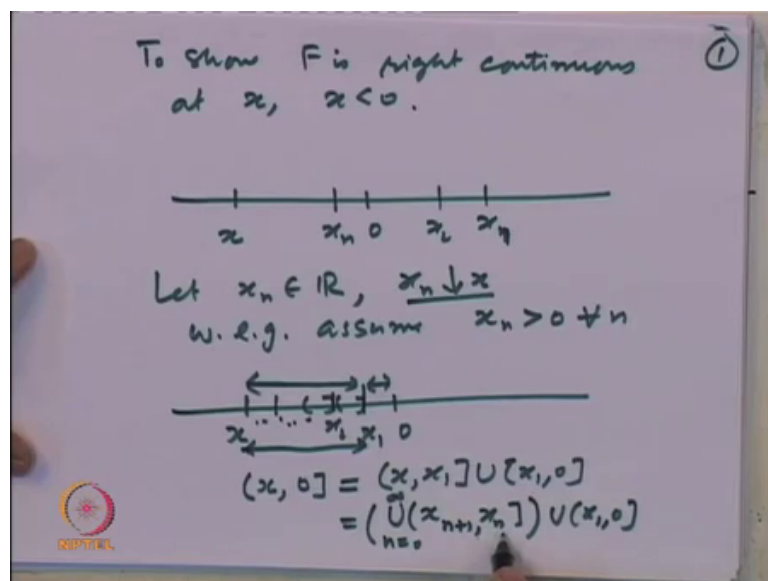 To show F is right continuous ①
at x, x < 0.
x xₙ 0 x₁ xₙ
Let xₙ ∈ ℝ, xₙ ↓ x
w.l.g. assume xₙ > 0 ∀ n
x .. .. x₂ x₁ 0
(x, 0] = (x, x₁] ∪ (x₁, 0]
= (∞∪n=0 (xₙ₊₁, xₙ]) ∪ (x₁, 0]
NPTEL